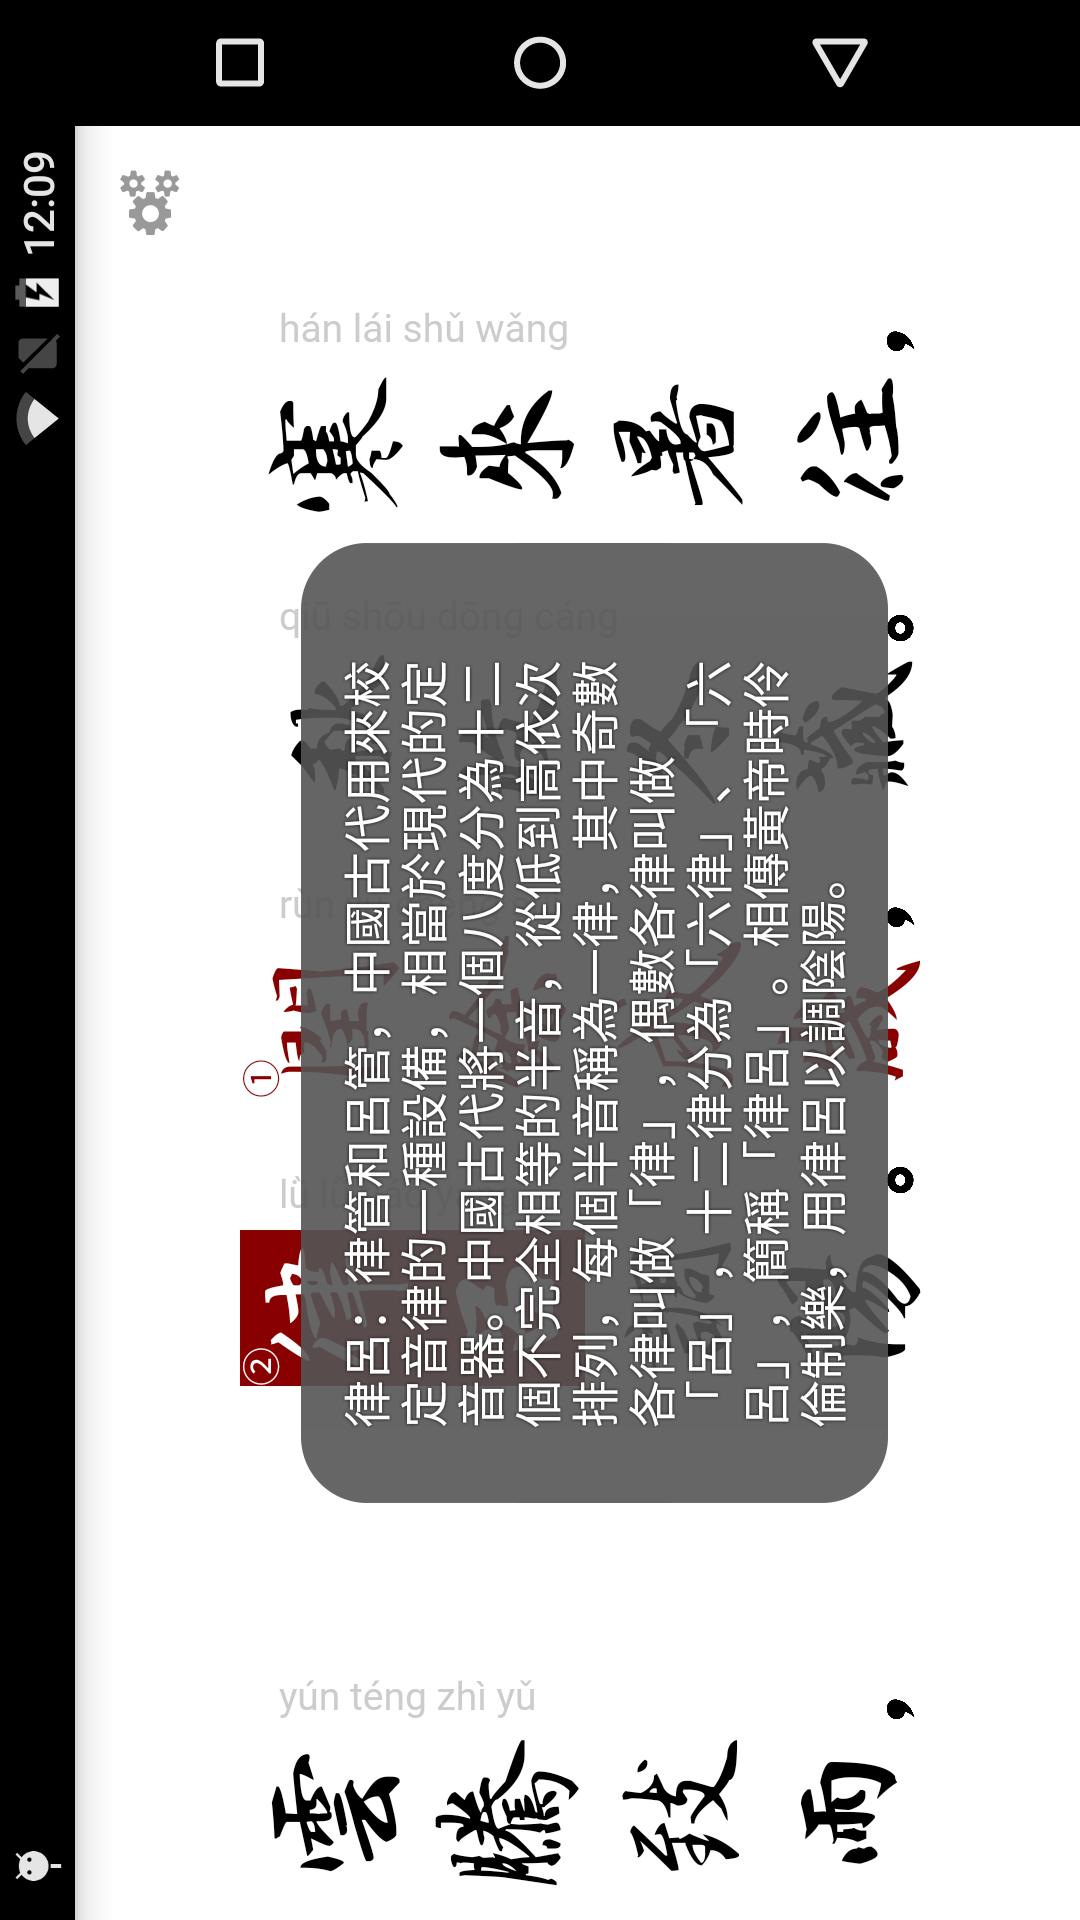 12:09
hán lái shǔ wǎng
寒來暑往，
qiū shōu dōng cáng
秋收冬藏。
①
閏餘成歲，
②
律呂調陽。
律呂：律管和呂管，中國古代用來校
定音律的一種設備，相當於現代的定
音器。中國古代將一個八度分為十二
個不完全相等的半音，從低到高依次
排列，每個半音稱為一律，其中奇數
各律叫做「律」，偶數各律叫做
「呂」，十二律分為「六律」、「六
呂」，簡稱「律呂」。相傳黃帝時伶
倫制樂，用律呂以調陰陽。
yún téng zhì yǔ
雲騰致雨，